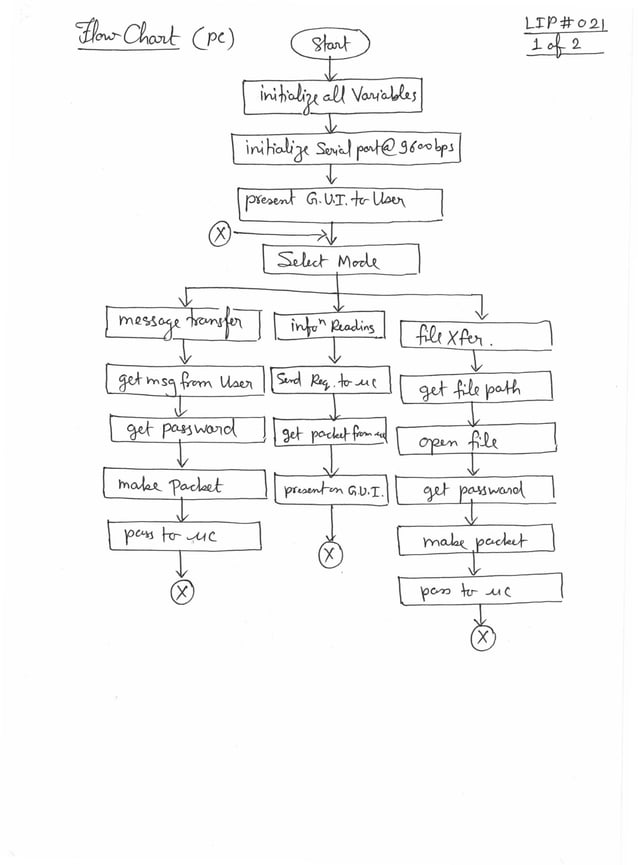 Flow Chart (PC)
LIP# 021
1 of 2
Start
initialize all Variables
initialize Serial port@9600bps
present G.U.I. to User
X
Select Mode
message transfer
infoⁿ Reading
file Xfer.
get msg from User
Send Req. to μc
get file path
get passward
get packet from μc
open file
make Packet
present on G.U.I.
get passward
pass to μC
make packet
X
X
pass to μC
X